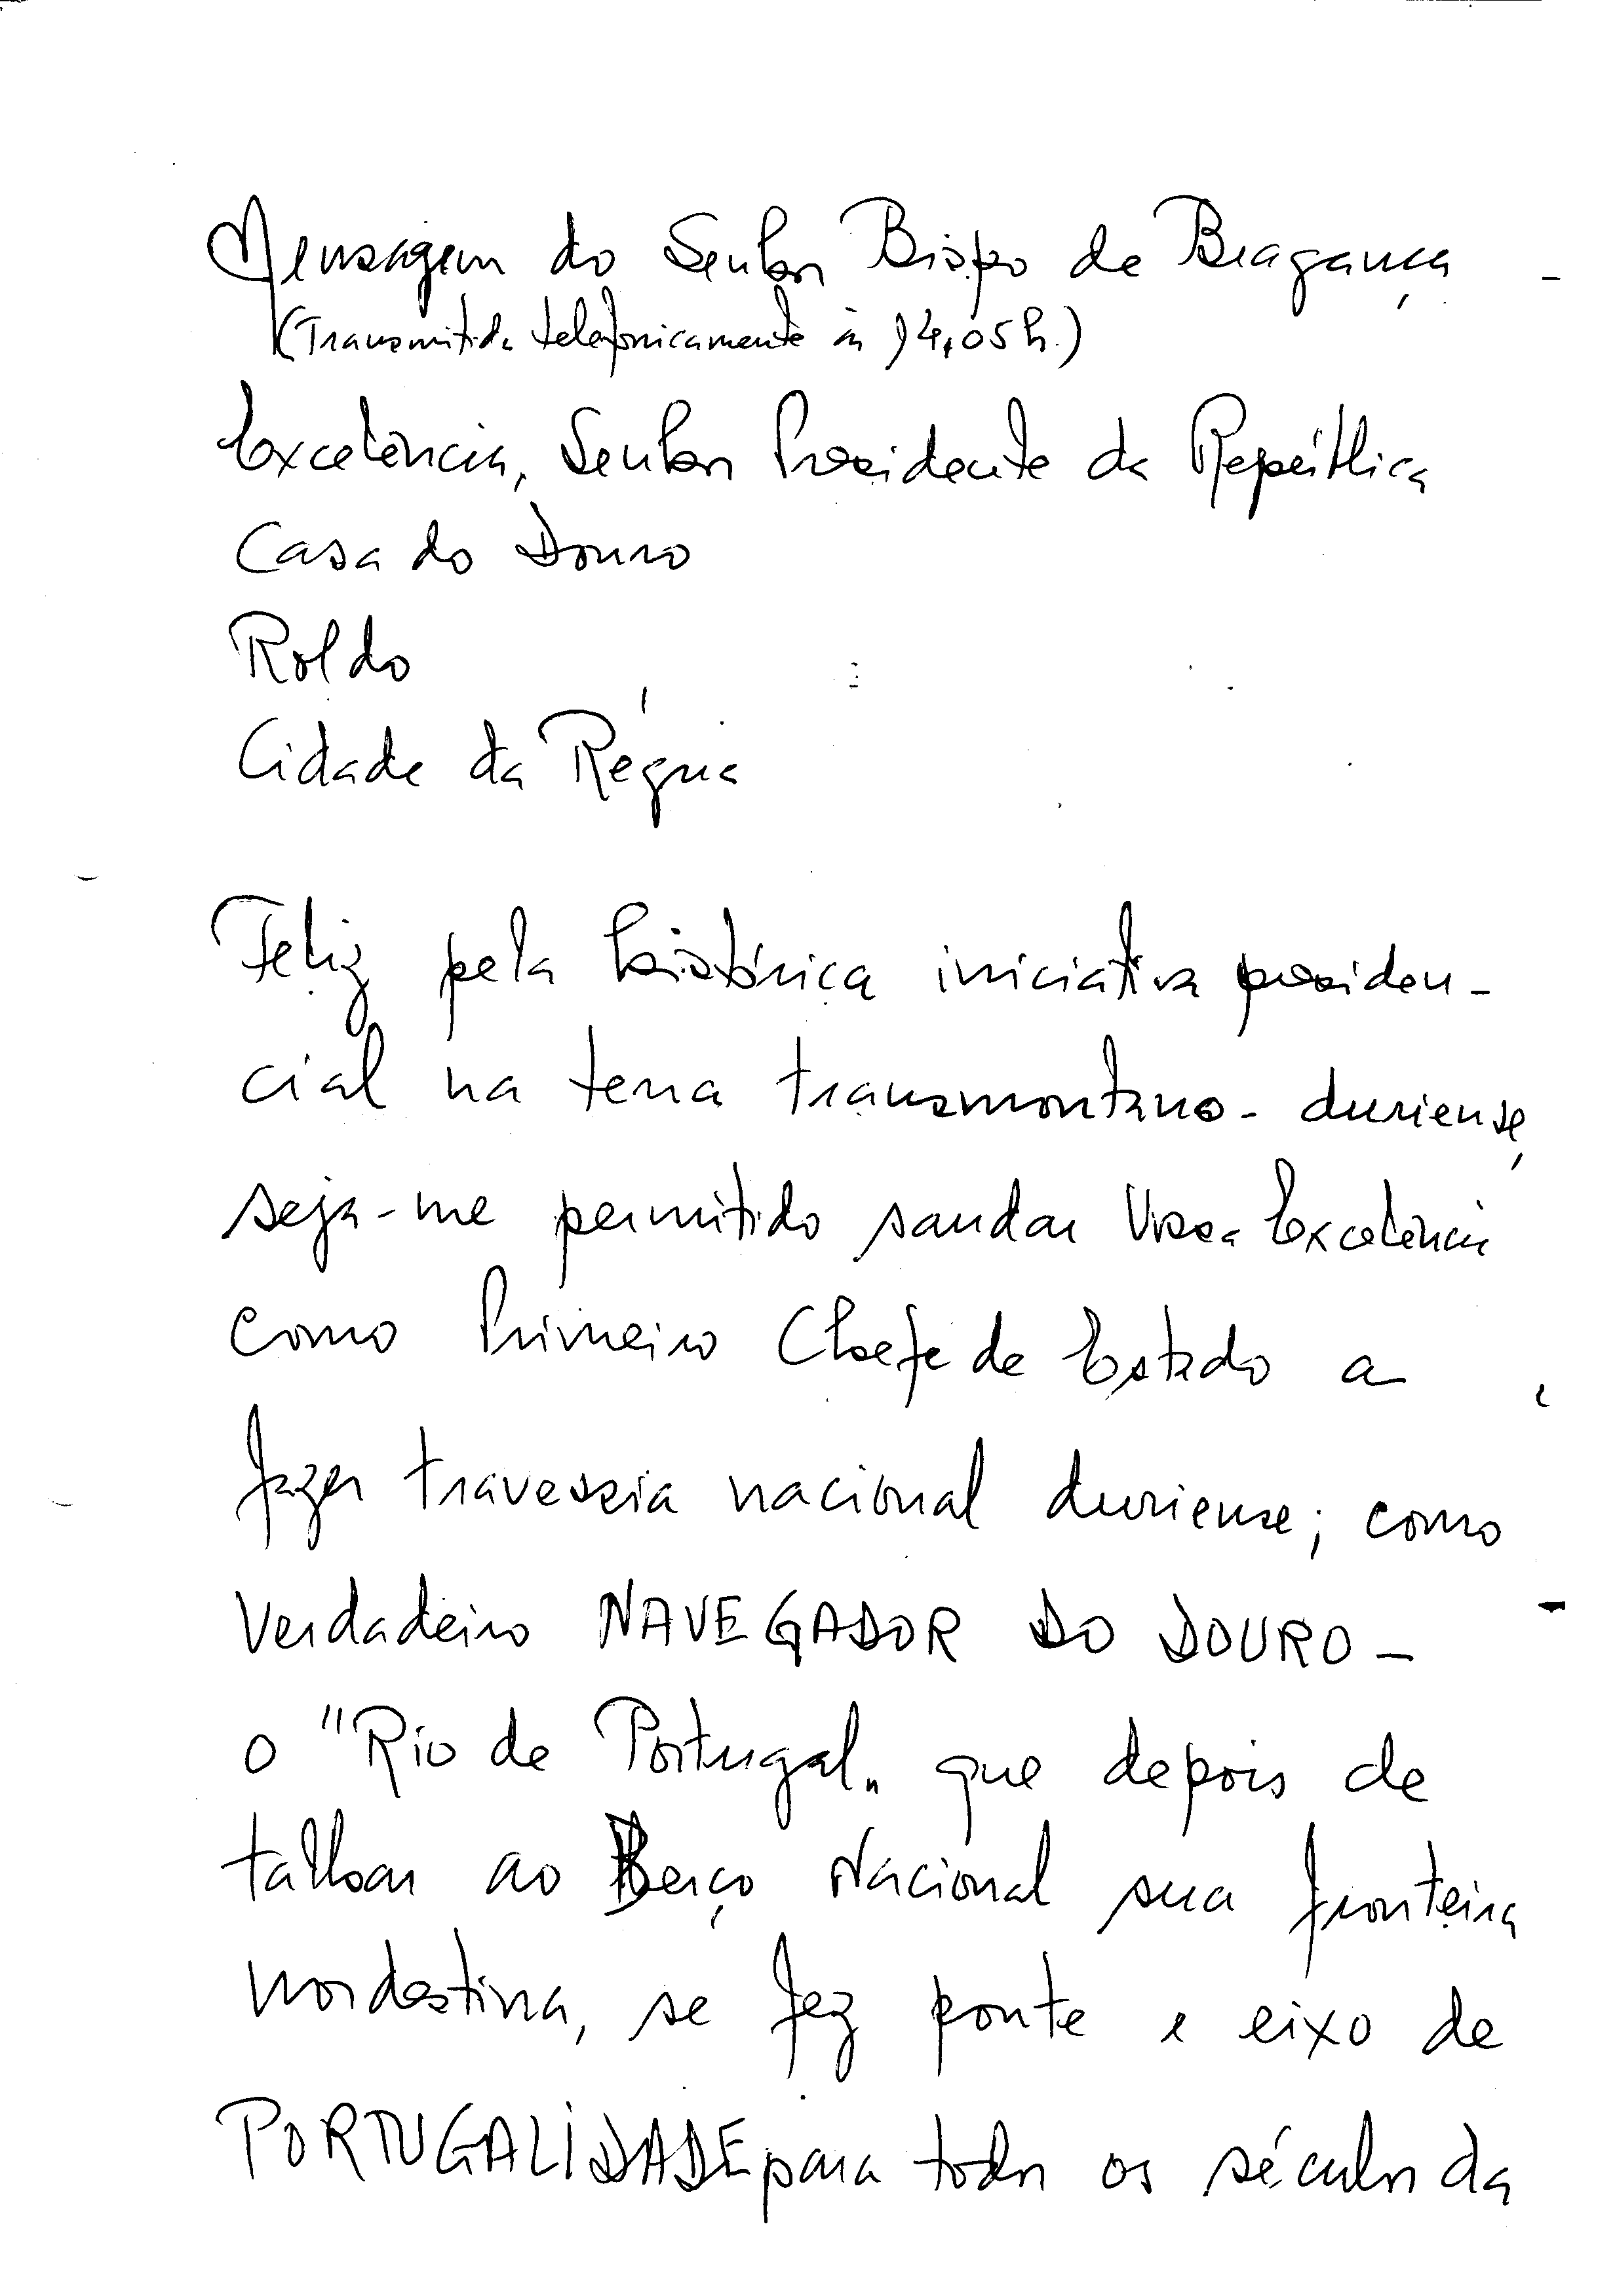 Mensagem do Senhor Bispo de Bragança
(Transmitida telefonicamente às 14,05 h.)
Excelência, Senhor Presidente da República
Casa do Douro
Roldo
Cidade da Régua
Feliz pela histórica iniciativa presiden-
cial na terra transmontano-duriense,
seja-me permitido saudar Vossa Excelência
como Primeiro Chefe de Estado a
fazer travessia nacional duriense; como
verdadeiro NAVEGADOR DO DOURO -
o "Rio de Portugal" que depois de
talhar ao Berço Nacional sua fronteira
nordestina, se fez ponte e eixo de
PORTUGALIDADE para todos os séculos da